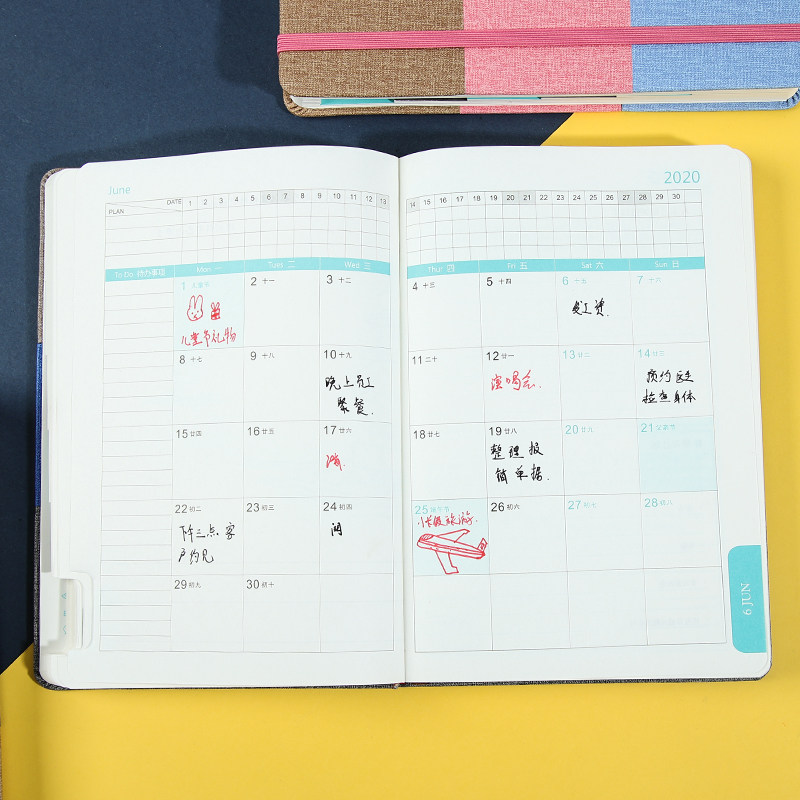 June
2020
DATE
PLAN
1 2 3 4 5 6 7 8 9 10 11 12 13
14 15 16 17 18 19 20 21 22 23 24 25 26 27 28 29 30
To Do 待办事项
Mon 一
Tues 二
Wed 三
Thur 四
Fri 五
Sat 六
Sun 日
1 儿童节
儿童节礼物
2 十一
3 十二
4 十三
5 十四
6 十五
发工资.
7 十六
8 十七
9 十八
10 十九
晚上员工
聚餐.
11 二十
12 廿一
演唱会.
13 廿二
14 廿三
预约医生
检查身体
15 廿四
16 廿五
17 廿六
18 廿七
19 廿八
整理报
销单据.
20 廿九
21 父亲节
22 初二
下午三点 客
户约见
23 初三
24 初四
25 端午节
小长假旅游.
26 初六
27 初七
28 初八
29 初九
30 初十
6 JUN